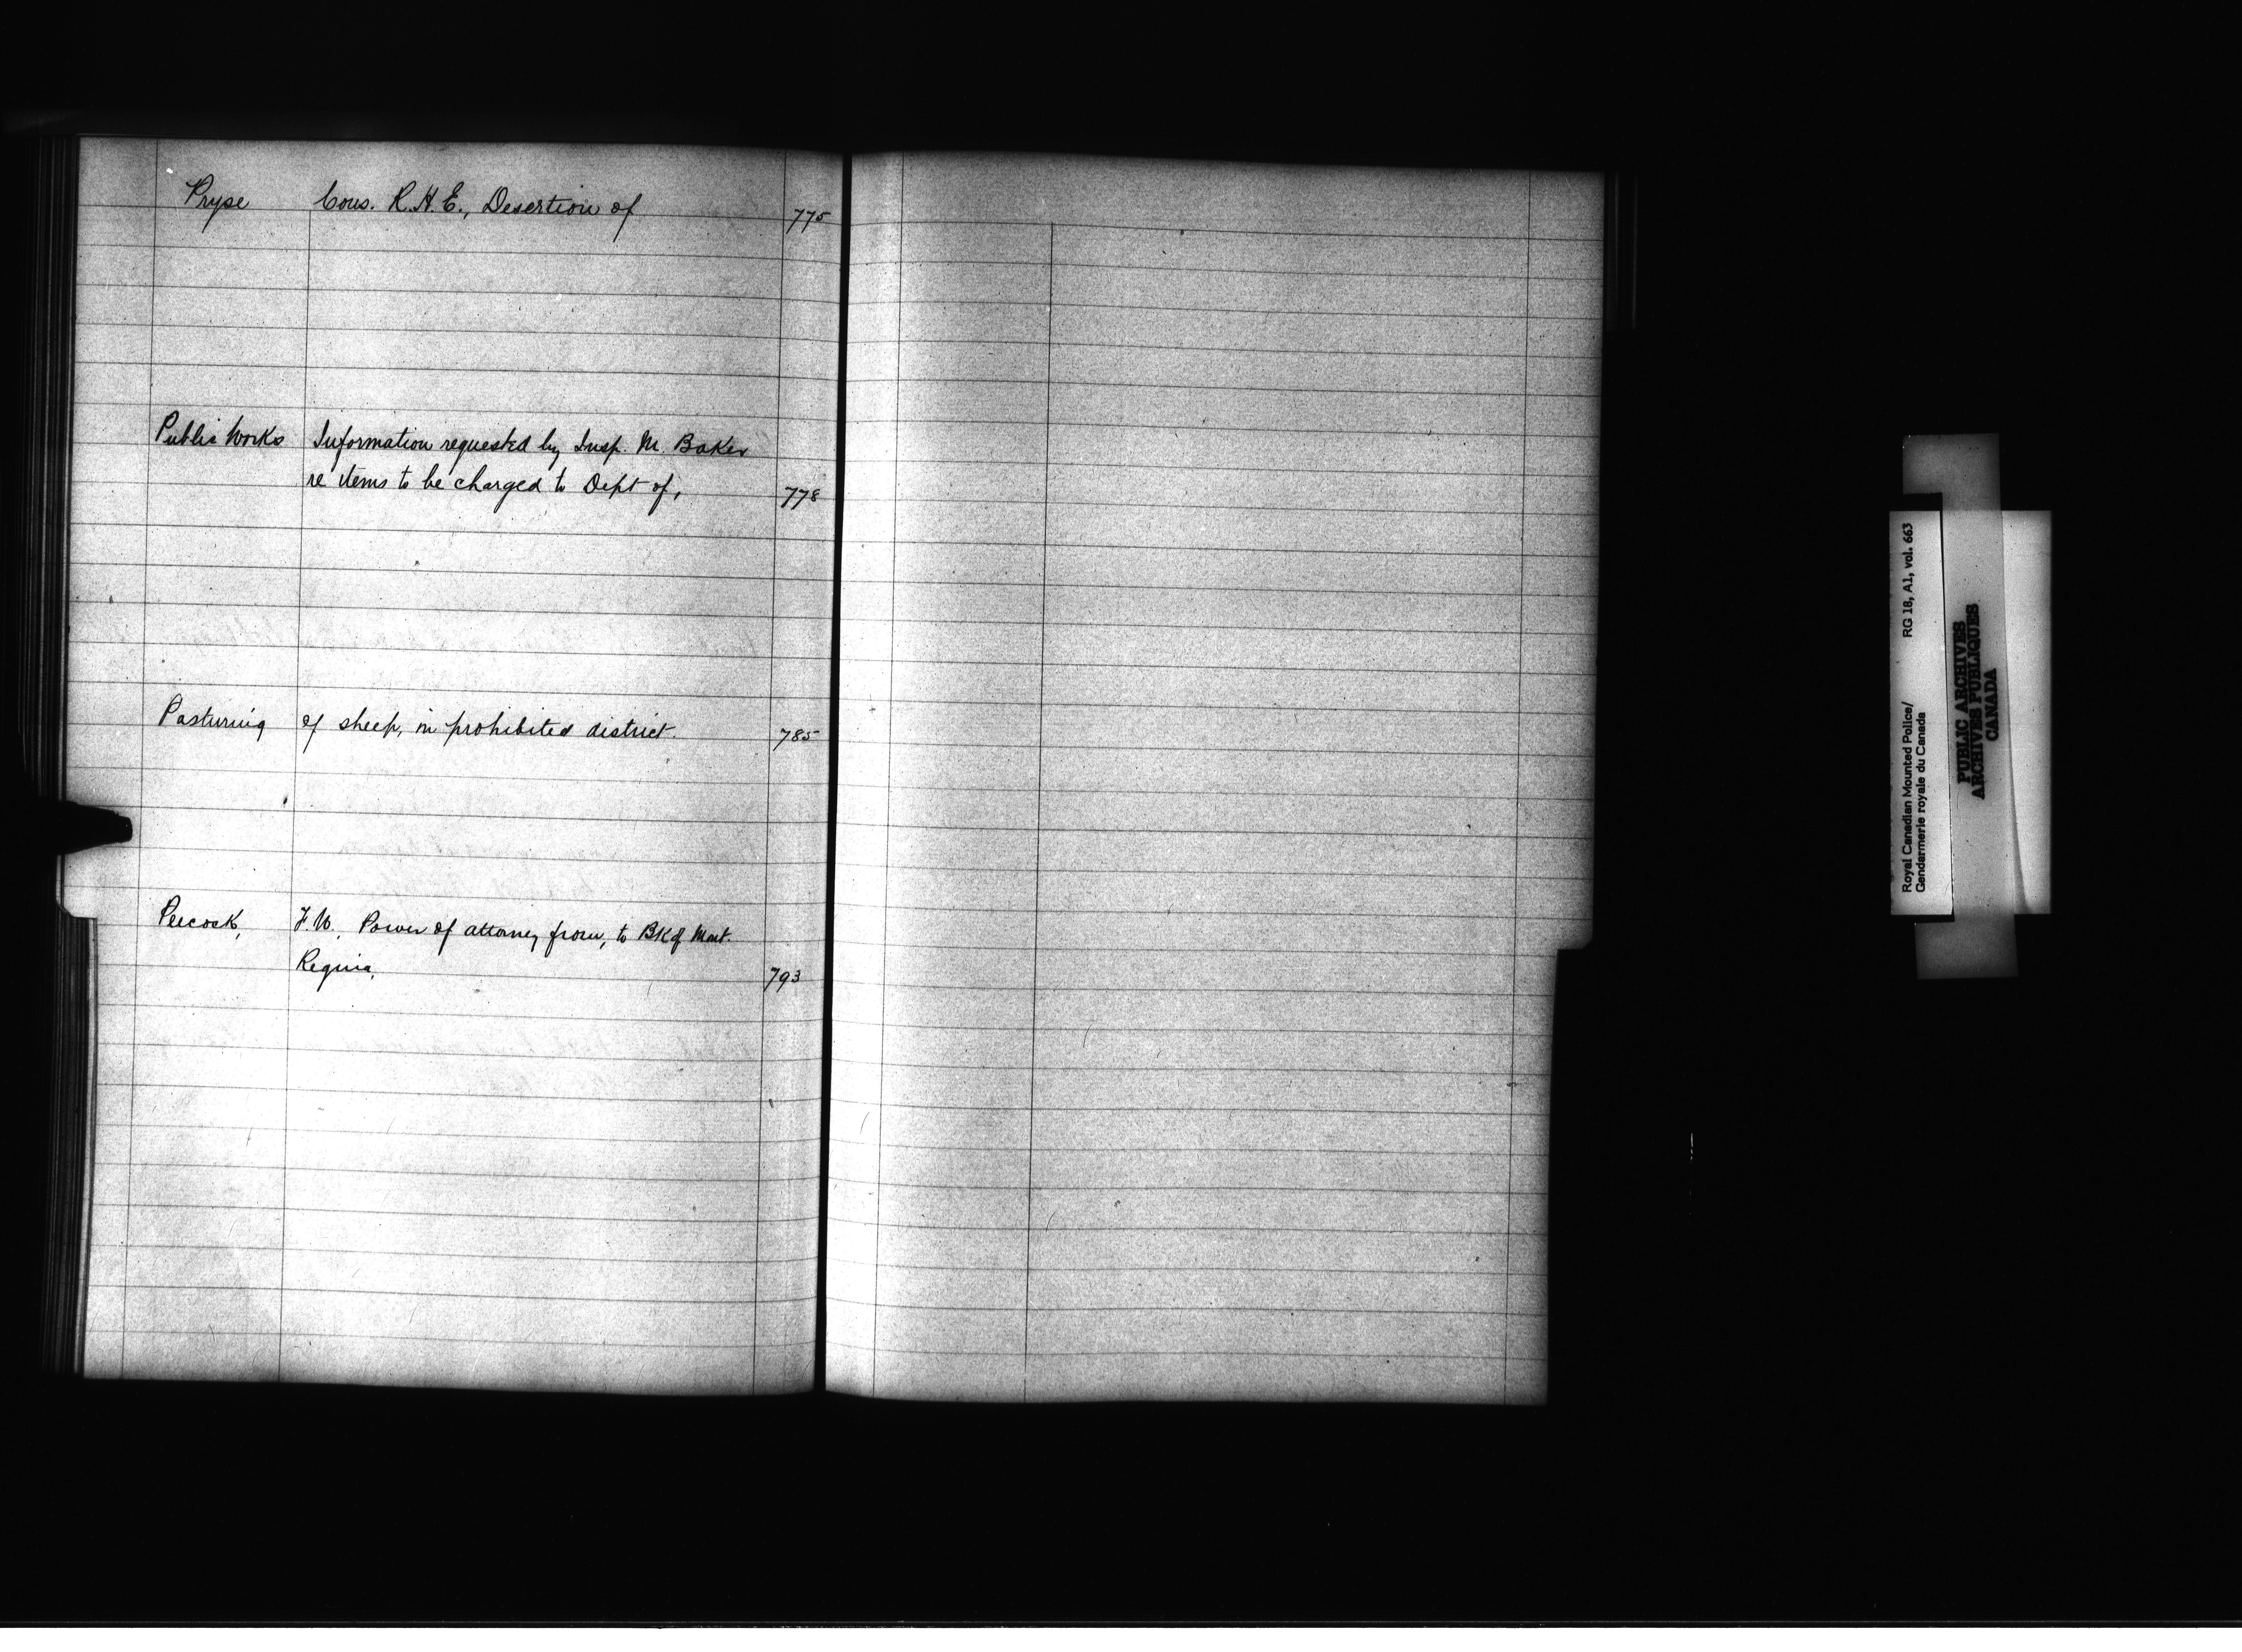 Pryse Cons. R.H.E., Desertion of 775
Public Works Information requested by Insp. M. Baker
re items to be charged to Dept of, 778
Pasturing of sheep, in prohibited district. 785
Peecock, F.W., Power of attorney from, to BK of Mont.
Regina, 793
Royal Canadian Mounted Police/ RG 18, A1, vol. 663
Gendarmerie royale du Canada
PUBLIC ARCHIVES
ARCHIVES PUBLIQUES
CANADA